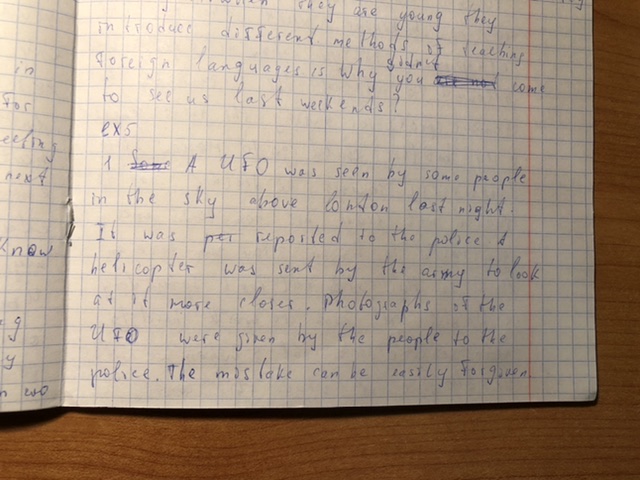 when they are young they
introduce different methods of teaching
foreign languages is why you didn't come
to see us last weekends?
ex5
1 A UFO was seen by some people
in the sky above London last night.
It was reported to the police A
helicopter was sent by the army to look
at it more closer. Photographs of the
UFO were given by the people to the
police. The mistake can be easily forgiven
in
For
next
know
y